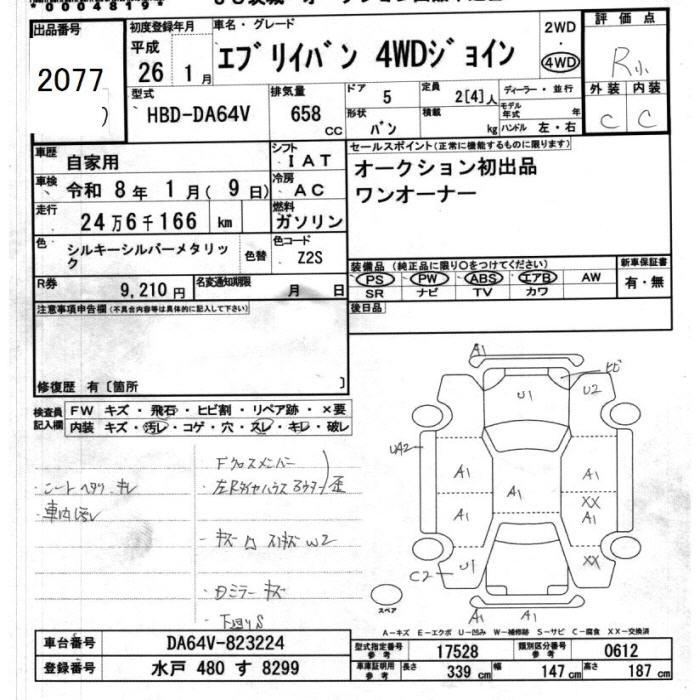 *00048194*
出品番号
2077
初度登録年月
平成
26 1月
車名・グレード
エブリイバン 4WDジョイン
2WD
・
4WD
評価点
R小
外装 内装
C C
型式
HBD-DA64V
排気量
658 CC
ドア 5
形状 バン
定員 2[4]人
積載 kg
ディーラー・並行
モデル年式 年
ハンドル 左・右
車歴 自家用
車検 令和 8年 1月(9日)
走行
24万6千166 km
色 シルキーシルバーメタリック
色替
シフト IAT
冷房 AC
燃料 ガソリン
色コード Z2S
R券 9,210円
名変通知期限 月 日
セールスポイント(正常に機能するものに限ります)
オークション初出品
ワンオーナー
装備品(純正品に限り○をつけてください)
PS PW ABS エアB AW
SR ナビ TV カワ
新車保証書
有・無
後日品
注意事項申告欄(不具合内容等は具体的に記入して下さい)
修復歴 有〔箇所 〕
検査員記入欄
FW キズ・飛石・ヒビ割・リペア跡・×要
内装 キズ・汚レ・コゲ・穴・スレ・キレ・破レ
・シートヘタリ キレ
・車内汚レ
Fクロスメンバー
・左Rタイヤハウス
歪
・キズ
W2
・Dミラー キズ
・下回りS
A1
U1
U2
UA2
A1
A1
A1
A1
XX
A1
U1
XX
C2
A1
A1
スペア
A-キズ E-エクボ U-凹み W-補修跡 S-サビ C-腐食 XX-交換済
車台番号 DA64V-823224
登録番号 水戸 480 す 8299
型式指定番号 参考 17528
類別区分番号 参考 0612
車庫証明用 参考 長さ 339 cm 幅 147 cm 高さ 187 cm